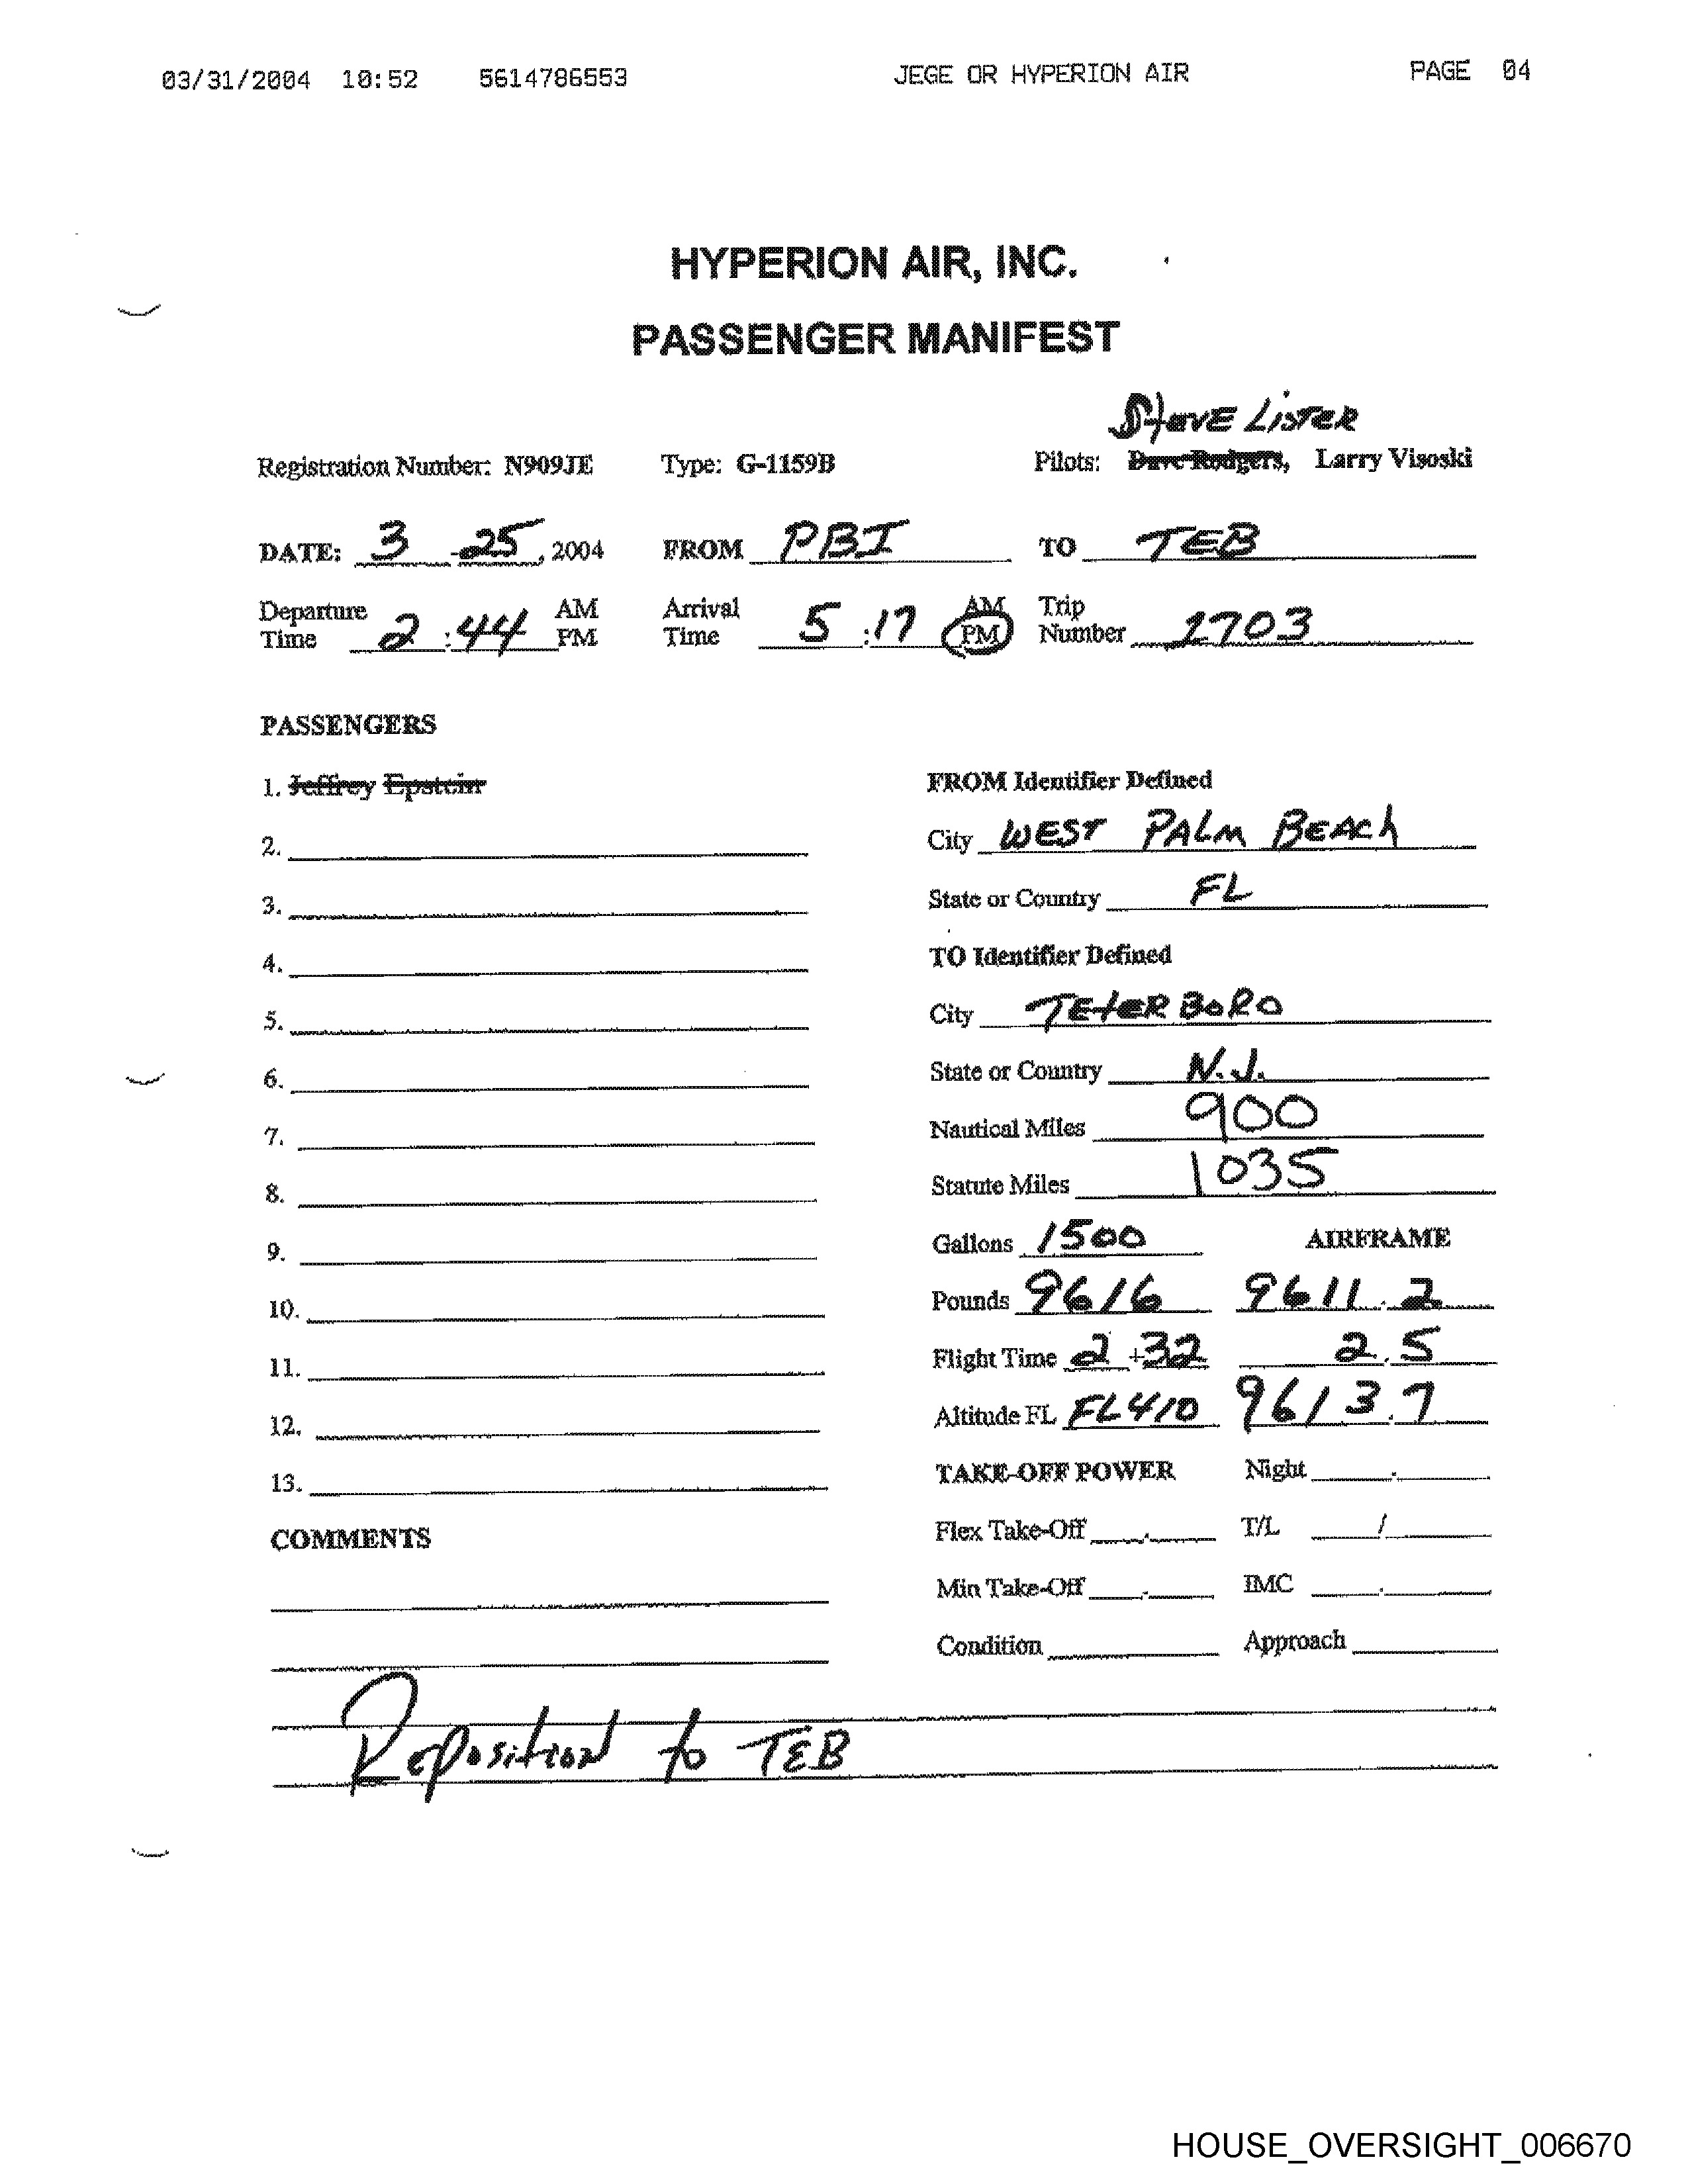 03/31/2004 10:52 5614786553 JEGE OR HYPERION AIR PAGE 04
HYPERION AIR, INC.
PASSENGER MANIFEST
Steve Lister
Registration Number: N909JE Type: G-1159B Pilots: Dave Rodgers, Larry Visoski
DATE: 3 - 25, 2004 FROM PBI TO TEB
Departure Time 2:44 AM PM Arrival Time 5:17 AM PM Trip Number 1703
PASSENGERS
1. Jeffrey Epstein FROM Identifier Defined
2. City WEST PALM BEACH
3. State or Country FL
4. TO Identifier Defined
5. City TETERBORO
6. State or Country N.J.
7. Nautical Miles 900
8. Statute Miles 1035
9. Gallons 1500 AIRFRAME
10. Pounds 9616 9611.2
11. Flight Time 2+32 2.5
12. Altitude FL FL410 9613.7
13. TAKE-OFF POWER Night .
COMMENTS Flex Take-Off . T/L /
Min Take-Off . IMC .
Condition Approach
Reposition to TEB
HOUSE_OVERSIGHT_006670